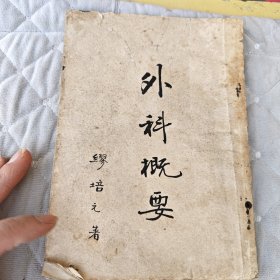 外科概要
缪培元著